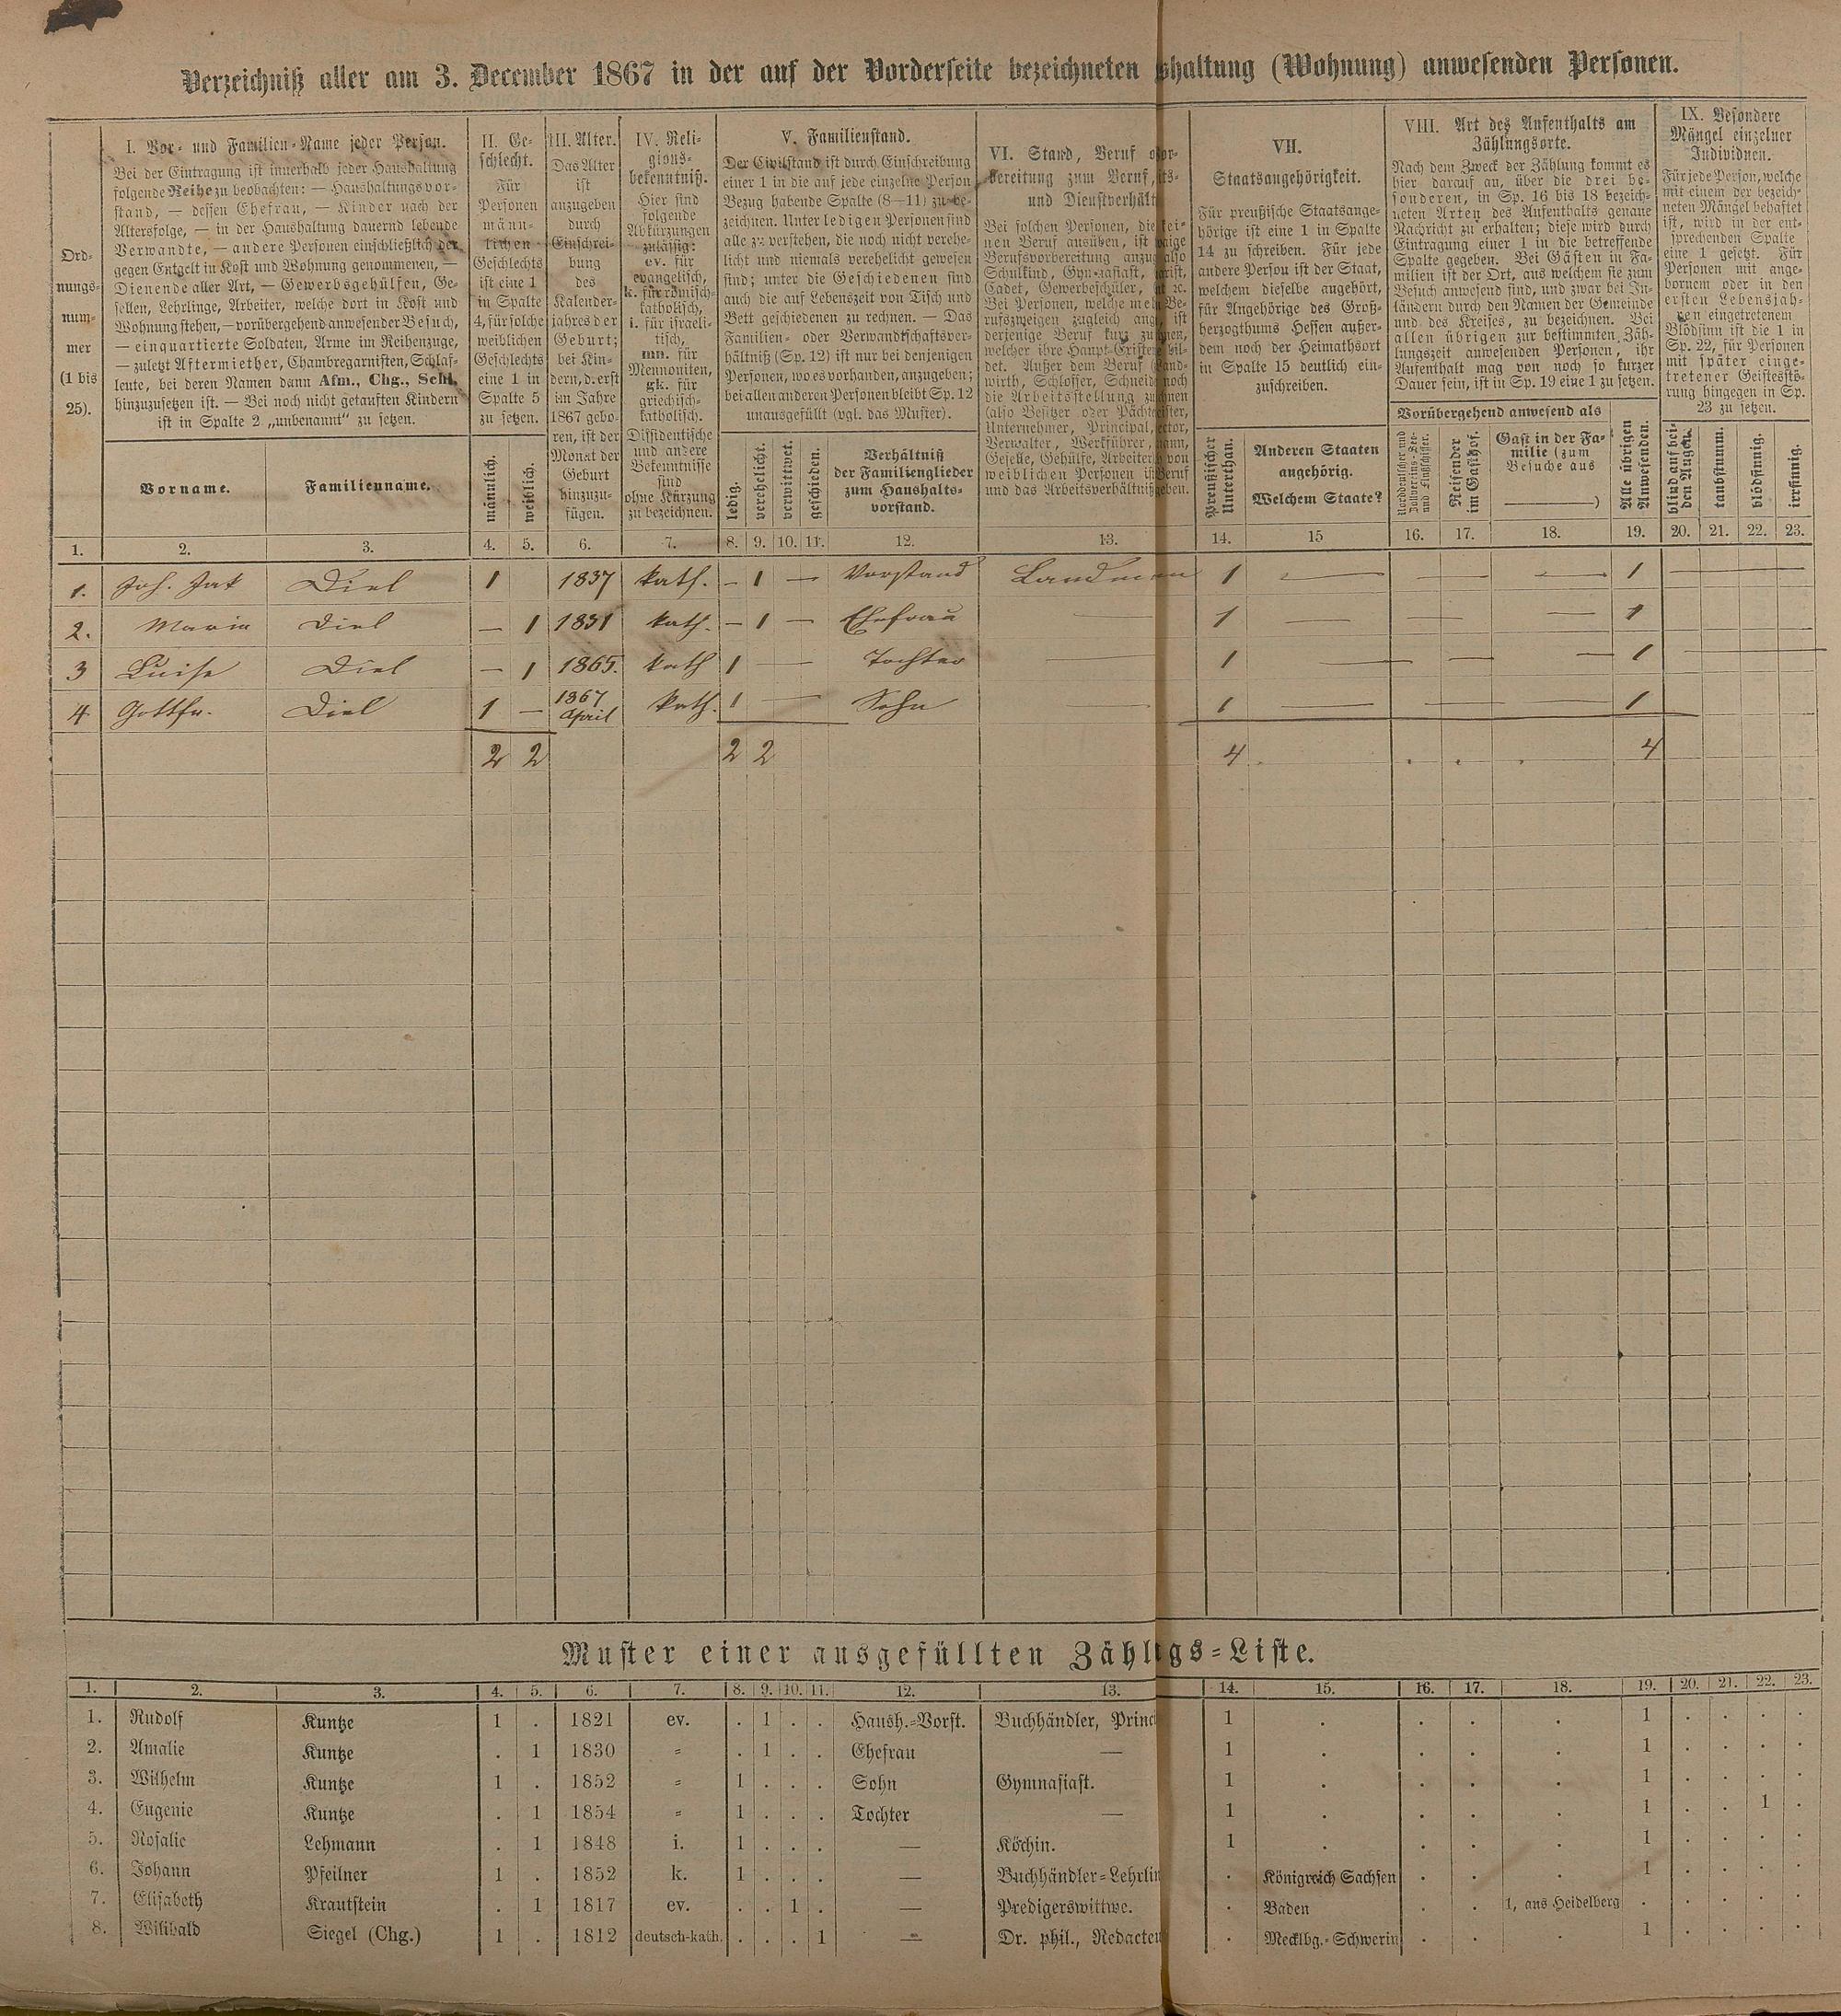 Verzeichniß aller am 3. December 1867 in der auf der Vorderseite bezeichneten shaltung (Wohnung) anwesenden Personen.
Ord-
nungs-
num-
mer
(1 bis
25).
I. Vor- und Familien-Name jeder Person.
Bei der Eintragung ist innerhalb jeder Haushaltung
folgende Reihe zu beobachten: — Haushaltungsvor-
stand, — dessen Ehefrau, — Kinder nach der
Altersfolge, — in der Haushaltung dauernd lebende
Verwandte, — andere Personen einschließlich der
gegen Entgelt in Kost und Wohnung genommenen, —
Dienende aller Art, — Gewerbsgehülfen, Ge-
sellen, Lehrlinge, Arbeiter, welche dort in Kost und
Wohnung stehen, — vorübergehend anwesender Besuch,
— einquartierte Soldaten, Arme im Reihenzuge,
— zuletzt Aftermiether, Chambregarnisten, Schlaf-
leute, bei deren Namen dann Afm., Chg., Schl.
hinzuzusetzen ist. — Bei noch nicht getauften Kindern
ist in Spalte 2 „unbenannt“ zu setzen.
Vorname.
Familienname.
II. Ge-
schlecht.
Für
Personen
männ-
lichen
Geschlechts
ist eine 1
in Spalte
4, für solche
weiblichen
Geschlechts
eine 1 in
Spalte 5
zu setzen.
männlich.
weiblich.
III. Alter.
Das Alter
ist
anzugeben
durch
Einschrei-
bung
des
Kalender-
jahres der
Geburt;
bei Kin-
dern, d. erst
im Jahre
1867 gebo-
ren, ist der
Monat der
Geburt
hinzuzu-
fügen.
IV. Reli-
gions-
bekenntniß.
Hier sind
folgende
Abkürzungen
zulässig:
ev. für
evangelisch,
k. für römisch-
katholisch,
i. für israeli-
tisch,
mn. für
Mennoniten,
gk. für
griechisch-
katholisch.
Dissidentische
und andere
Bekenntnisse
sind
ohne Kürzung
zu bezeichnen.
V. Familienstand.
Der Civilstand ist durch Einschreibung
einer 1 in die auf jede einzelne Person
Bezug habende Spalte (8—11) zu be-
zeichnen. Unter ledigen Personen sind
alle zu verstehen, die noch nicht verehe-
licht und niemals verehelicht gewesen
sind; unter die Geschiedenen sind
auch die auf Lebenszeit von Tisch und
Bett geschiedenen zu rechnen. — Das
Familien- oder Verwandtschaftsver-
hältniß (Sp. 12) ist nur bei denjenigen
Personen, wo es vorhanden, anzugeben;
bei allen anderen Personen bleibt Sp. 12
unausgefüllt (vgl. das Muster).
ledig.
verehelicht.
verwittwet.
geschieden.
Verhältniß
der Familienglieder
zum Haushalts-
vorstand.
VI. Stand, Beruf o
bereitung zum Beruf,
und Dienstverhält
Bei solchen Personen, die
nen Beruf ausüben, ist
Berufsvorbereitung anzu
Schulkind, Gymnasiast,
Cadet, Gewerbeschüler,
Bei Personen, welche
rufszweigen zugleich
derjenige Beruf kurz
welcher ihre Haupt-Existe
det. Außer dem Beruf
wirth, Schlosser, Schneid
die Arbeitsstellung
(also Besitzer oder
Unternehmer, Principal,
Verwalter, Werkführer,
Geselle, Gehülfe, Arbeiter
weiblichen Personen
und das Arbeitsverhältniß
VII.
Staatsangehörigkeit.
Für preußische Staatsange-
hörige ist eine 1 in Spalte
14 zu schreiben. Für jede
andere Person ist der Staat,
welchem dieselbe angehört,
für Angehörige des Groß-
herzogthums Hessen außer-
dem noch der Heimathsort
in Spalte 15 deutlich ein-
zuschreiben.
Preußischer
Unterthan.
Anderen Staaten
angehörig.
Welchem Staate?
VIII. Art des Aufenthalts am
Zählungsorte.
Nach dem Zweck der Zählung kommt es
hier darauf an, über die drei be-
sonderen, in Sp. 16 bis 18 bezeich-
neten Arten des Aufenthalts genaue
Nachricht zu erhalten; diese wird durch
Eintragung einer 1 in die betreffende
Spalte gegeben. Bei Gästen in Fa-
milien ist der Ort, aus welchem sie zum
Besuch anwesend sind, und zwar bei In-
ländern durch den Namen der Gemeinde
und des Kreises, zu bezeichnen. Bei
allen übrigen zur bestimmten Zäh-
lungszeit anwesenden Personen, ihr
Aufenthalt mag von noch so kurzer
Dauer sein, ist in Sp. 19 eine 1 zu setzen.
Vorübergehend anwesend als
Norddeutscher und
Zollvereins-See-
und Flußschiffer.
Reisender
im Gasthof.
Gast in der Fa-
milie (zum
Besuche aus
)
Alle übrigen
Anwesenden.
IX. Besondere
Mängel einzelner
Individuen.
Für jede Person, welche
mit einem der bezeich-
neten Mängel behaftet
ist, wird in der ent-
sprechenden Spalte
eine 1 gesetzt. Für
Personen mit ange-
bornem oder in den
ersten Lebensjah-
ren eingetretenem
Blödsinn ist die 1 in
Sp. 22, für Personen
mit später einge-
tretener Geistesstö-
rung hingegen in Sp.
23 zu setzen.
blind auf bei-
den Augen.
taubstumm.
blödsinnig.
irrsinnig.
1. 2. 3. 4. 5. 6. 7. 8. 9. 10. 11. 12. 13. 14. 15 16. 17. 18. 19. 20. 21. 22. 23.
1. Joh. Jak Diel 1 1837 kath. — 1 — Vorstand Landman 1 — — — 1 —
2. Maria Diel — 1 1831 kath. — 1 — Ehefrau — 1 — — — 1
3 Luise Diel — 1 1865. kath 1 — Tochter — 1 — — — 1 —
4 Gottfr. Diel 1 — 1867 April kath. 1 — Sohn — 1 — — — 1
2 2 2 2 4 . . . . 4
Muster einer ausgefüllten Zähl gs-Liste.
1. 2. 3. 4. 5. 6. 7. 8. 9. 10. 11. 12. 13. 14. 15. 16. 17. 18. 19. 20. 21. 22. 23.
1. Rudolf Kuntze 1 . 1821 ev. . 1 . . Haush.-Vorst. Buchhändler, Princ 1 . . . . 1 . . . .
2. Amalie Kuntze . 1 1830 " . 1 . . Ehefrau — 1 . . . . 1 . . . .
3. Wilhelm Kuntze 1 . 1852 " 1 . . . Sohn Gymnasiast. 1 . . . . 1 . . . .
4. Eugenie Kuntze . 1 1854 " 1 . . . Tochter — 1 . . . . 1 . . 1 .
5. Rosalie Lehmann . 1 1848 i. 1 . . . — Köchin. 1 . . . . 1 . . . .
6. Johann Pfeilner 1 . 1852 k. 1 . . . — Buchhändler-Lehrlin . Königreich Sachsen . . . 1 . . . .
7. Elisabeth Krautstein . 1 1817 ev. . . 1 . — Predigerswittwe. . Baden . . 1, aus Heidelberg . . . . .
8. Wilibald Siegel (Chg.) 1 . 1812 deutsch-kath. . . . 1 — Dr. phil., Redacteu . Mecklbg.-Schwerin . . . 1 . . . .